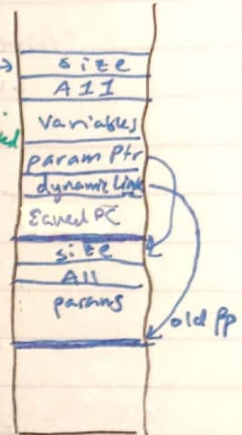 size
All
variables
param Ptr
dynamic Link
Saved PC
size
All
params
old fp